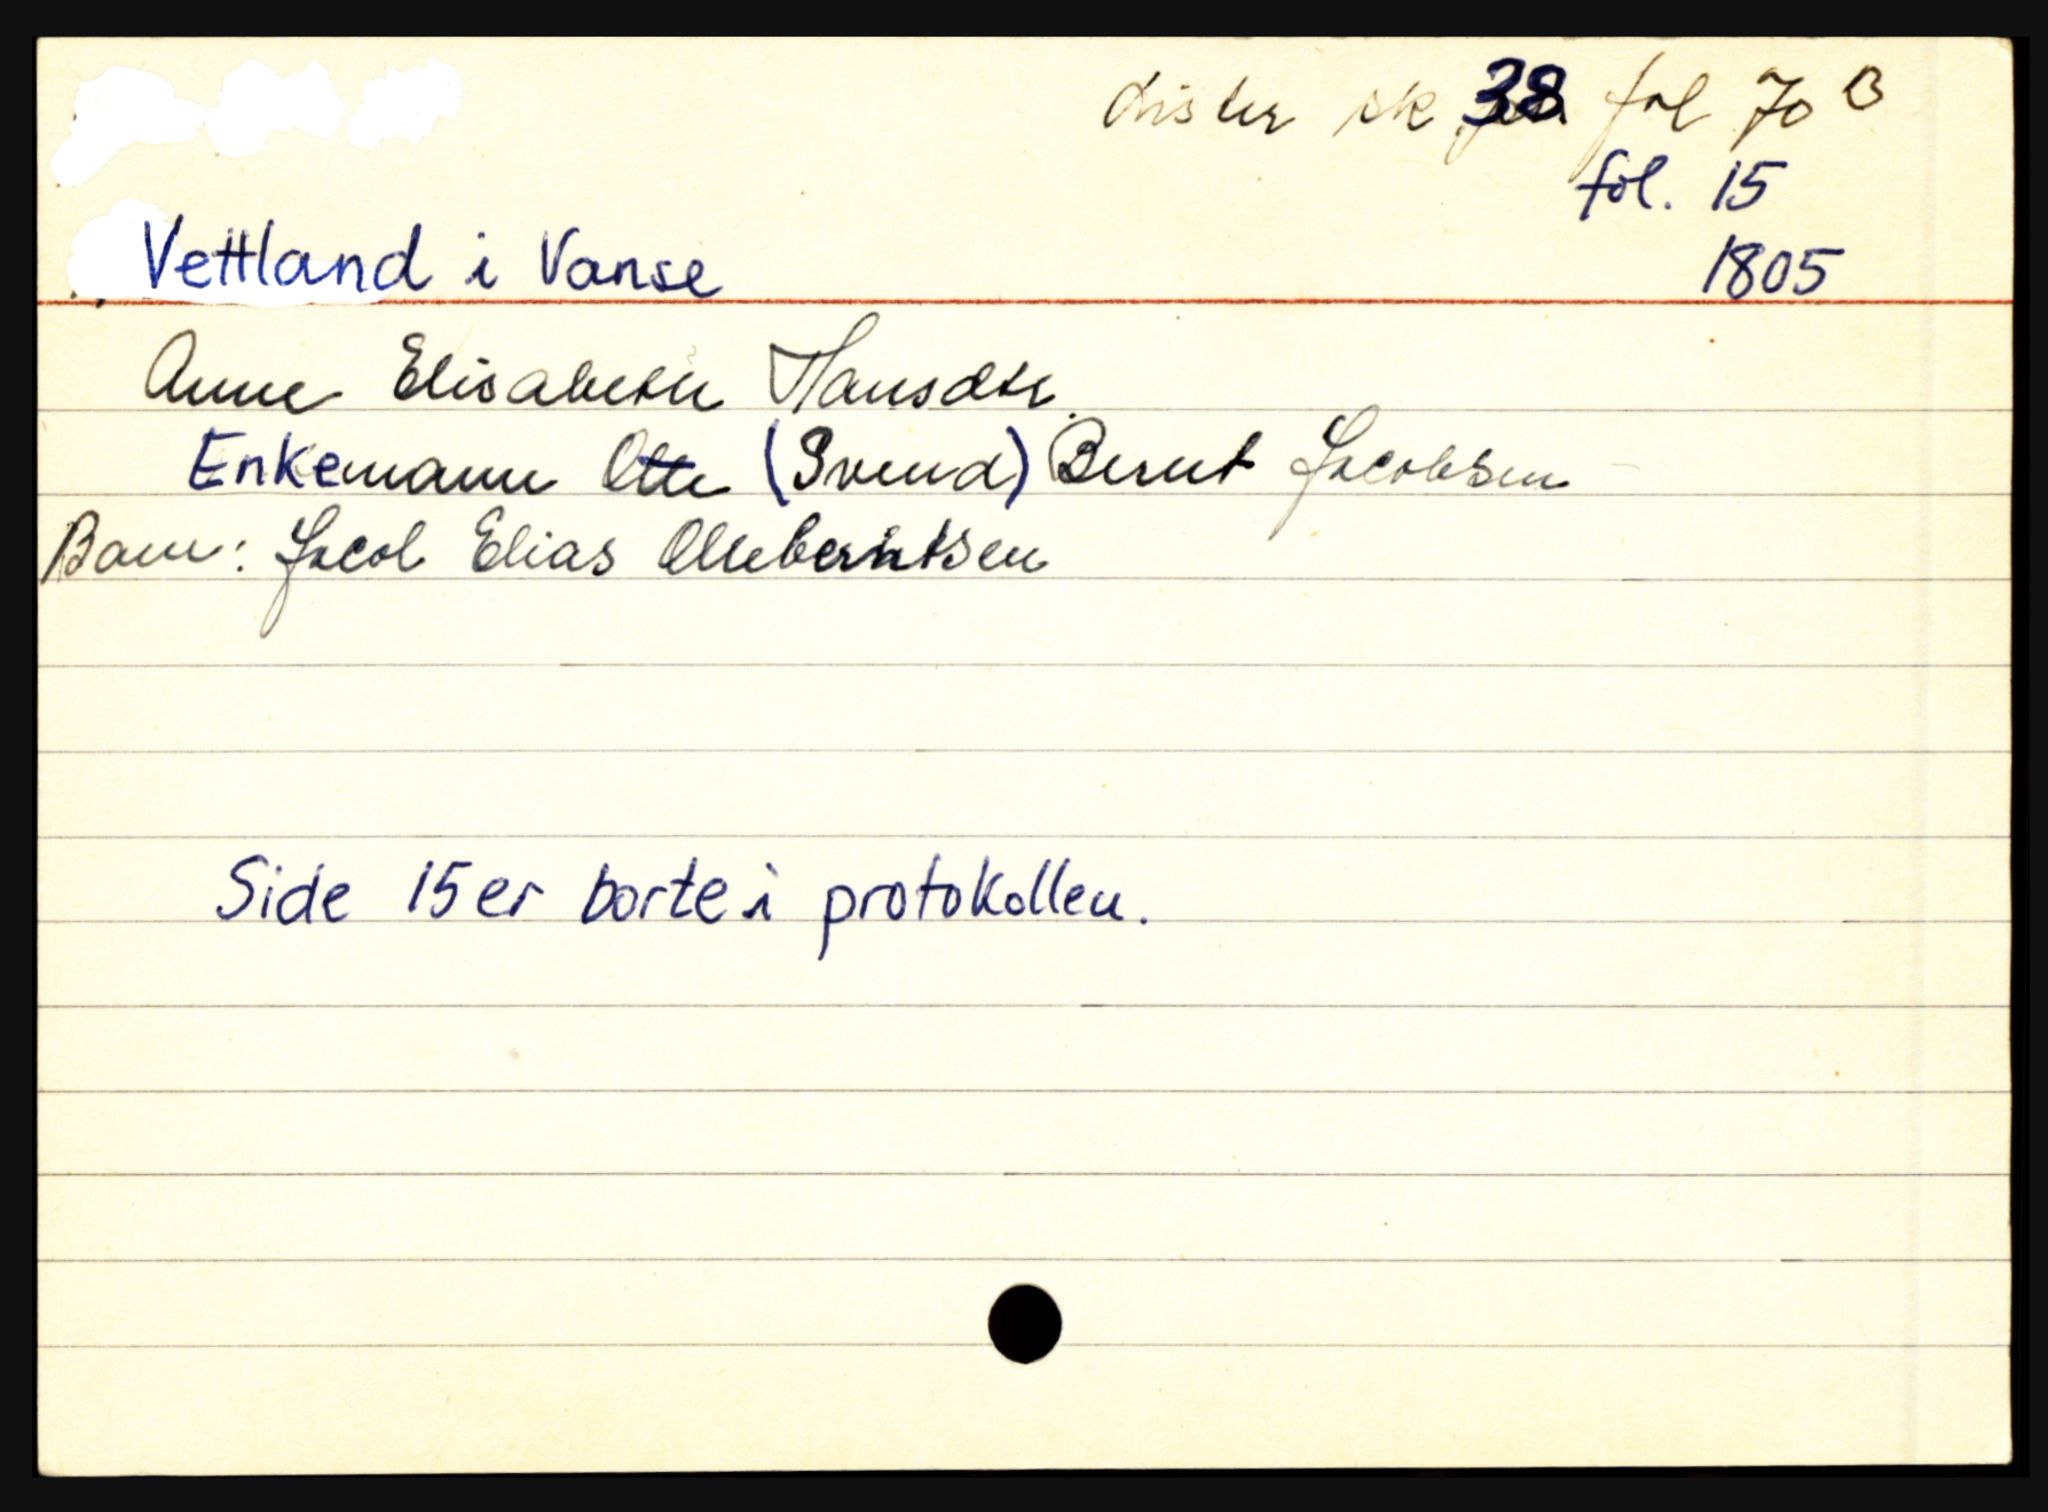 Lister sk 38 fol 70 B
fol. 15
Vettland i Vanse
1805
Anne Elisabeth Hansdtr.
Enkemann Otte (Svend) Bernt Jacobsen
Barn: Jacob Elias Olleberntsen
Side 15 er borte i protokollen.